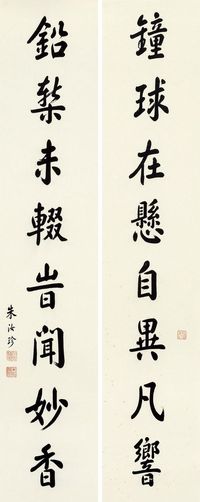 鐘球在懸自異凡響
鉛槧未輟旹聞妙香
朱汝珍